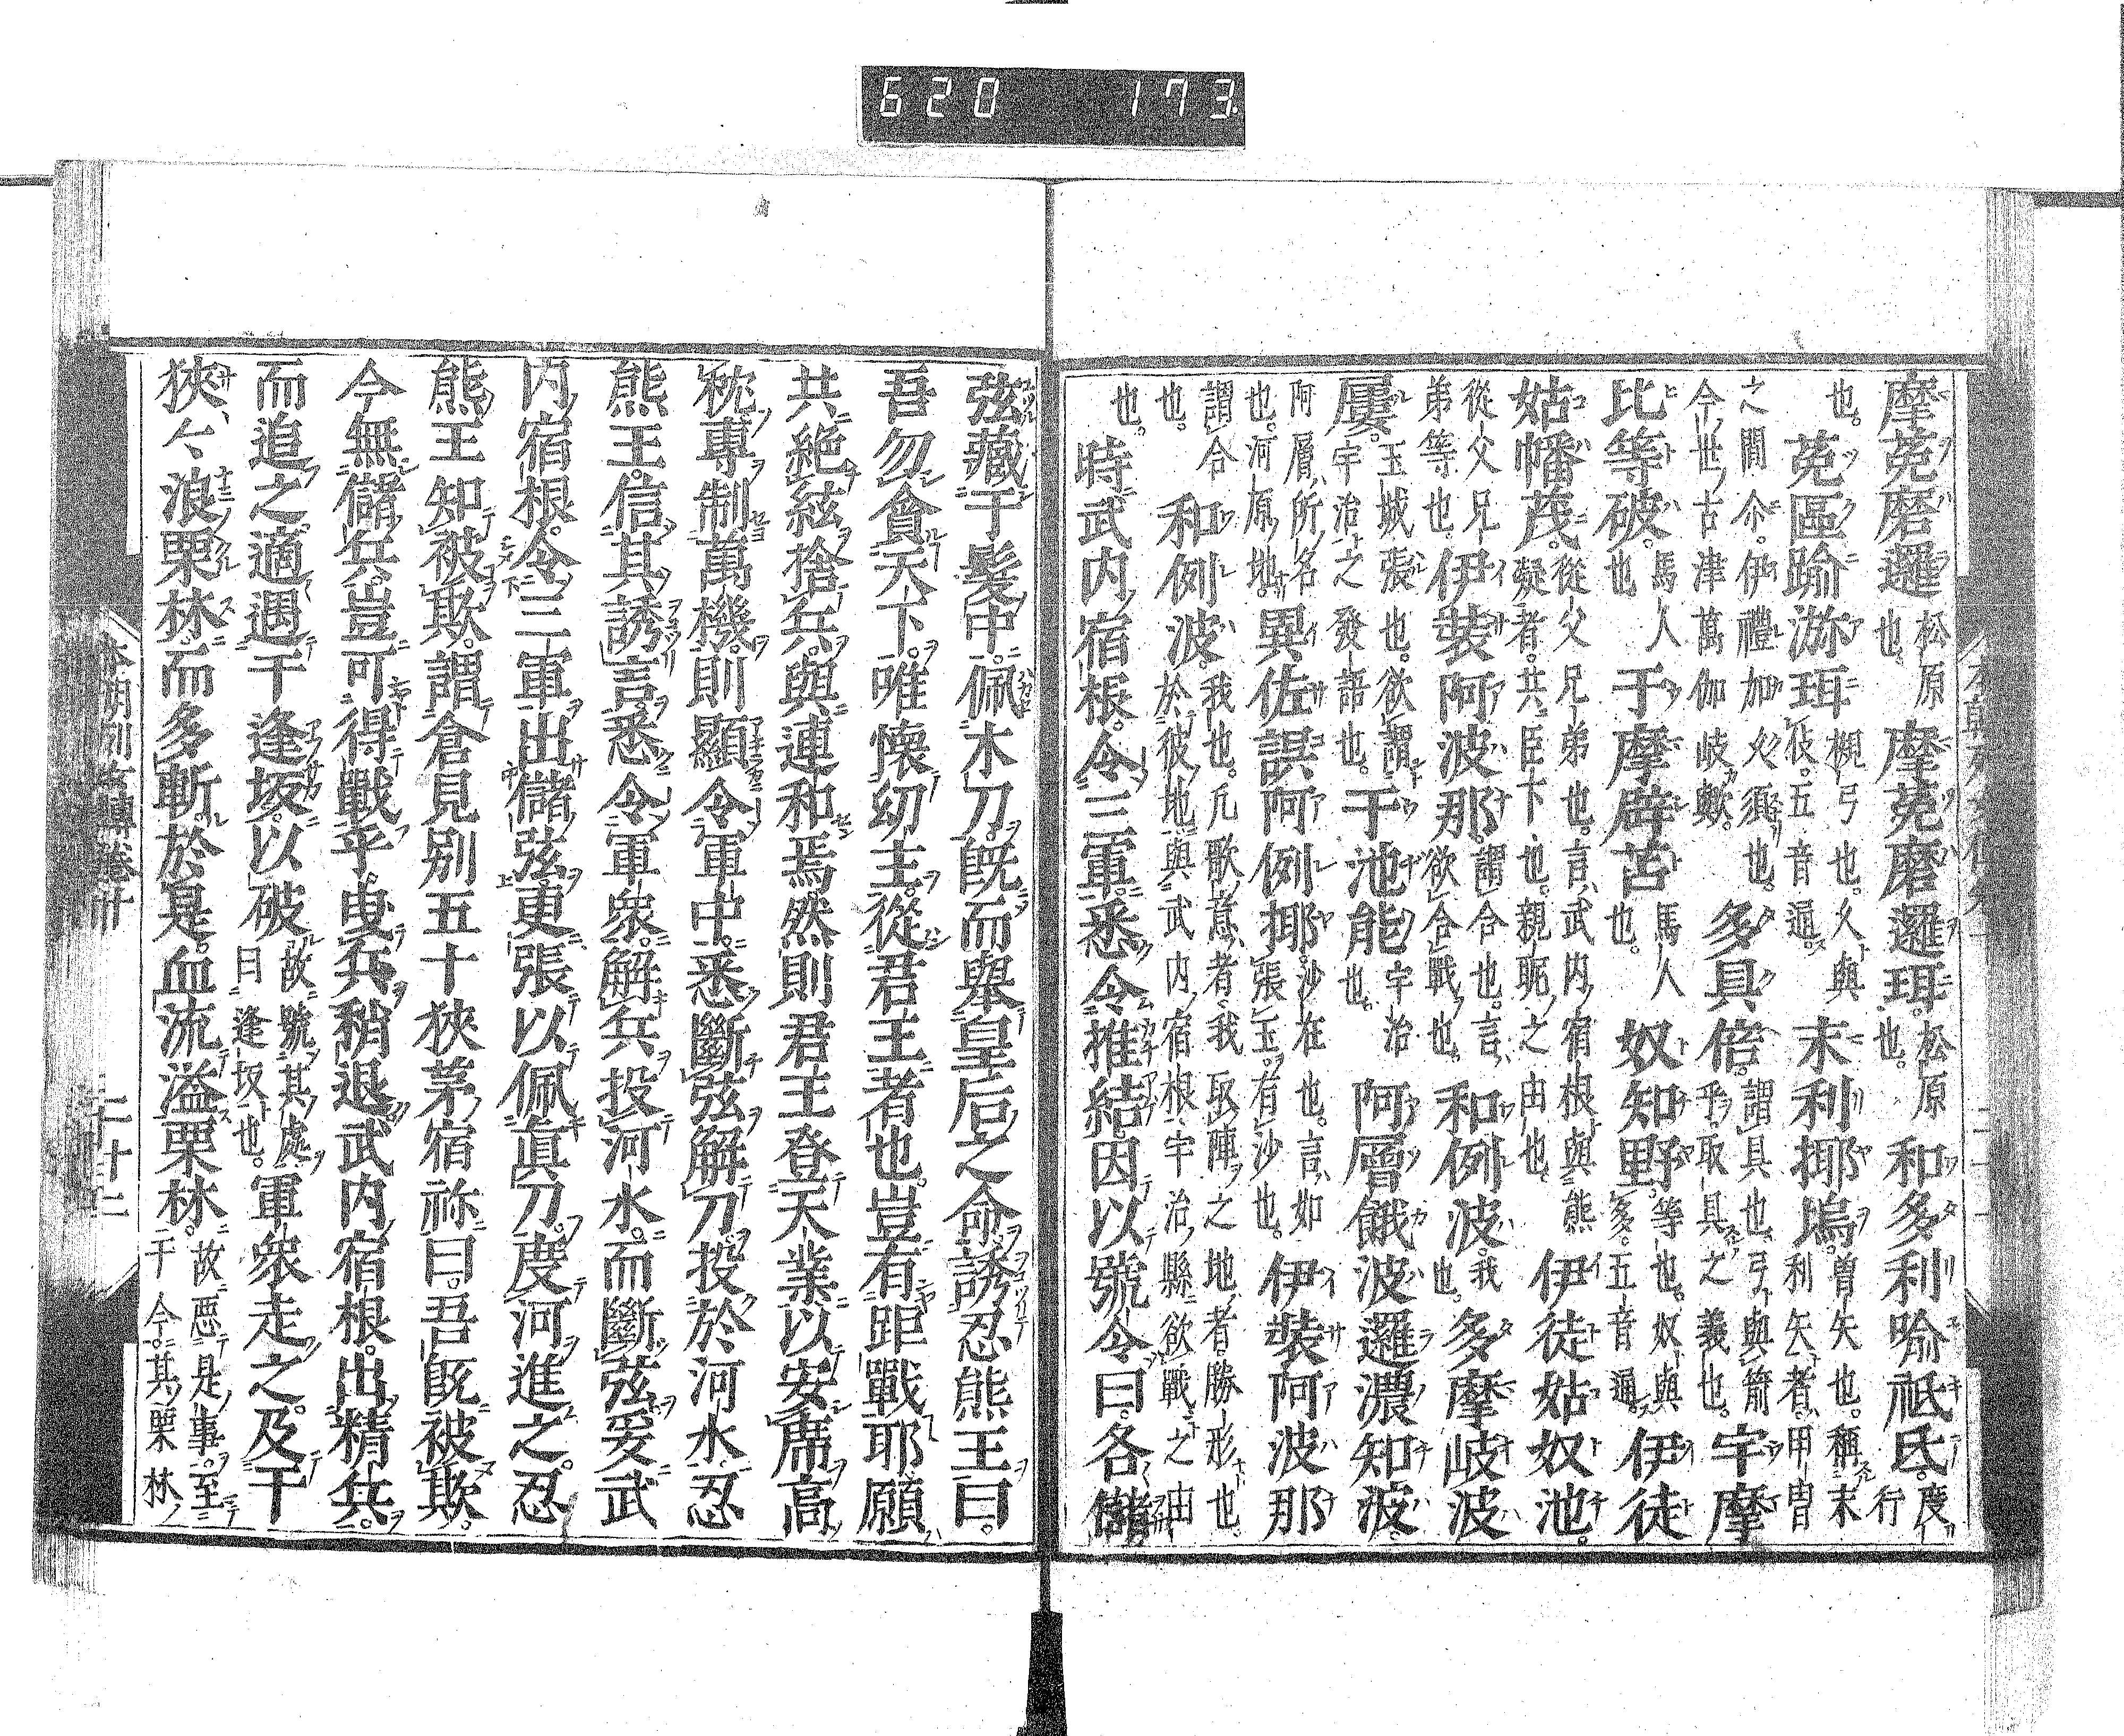 620 173
摩菟磨邏松原也摩菟磨邏珥松原也。和多利喩祗氐。度行
也。菟區喩游珥槻弓也。久與伎。五音通。末利椰塢。曽矢也。稱末利矢者。甲冑
之間介。伊禮加久須也。今世古津萬伽岐歟。多具倍。謂具也。弓與箭乎。取具之義也。宇摩
比等破。馬人也于摩臂苫馬人也。奴知野。等也。奴與多。五音通伊徒
姑幡茂。從父兄弟也。言武内宿根與熊疑者。共臣下也。親眤之由也伊徒姑奴池。
從父兄弟等也。伊裝阿波那。謂合也。言欲合戰也。和例波。我也。多摩岐波
屢。玉城張也。欲謂宇治之發語也。于池能宇治也。阿層餓波邏濃知波。
阿層所名也。河原地。異佐誤阿例椰。沙在也。言如張玉。有沙也。伊裝阿波那
謂合也。和例波。我也。凡歌意者我取陣之地者勝形也。於彼地與武内宿根宇治縣欲戰之由
也。時武内宿根。令三軍。悉令推結。因以號令曰。各儲
弦藏于髮中。佩木刀。既而擧皇后之命。誘忍熊王曰。
吾勿貪天下。唯懷幼主。從君王者也。豈有距戰耶。願
共絶絃捨兵。與連和焉。然則君王登天業以安席高
枕專制萬機。則顯令軍中。悉斷弦解刀。投於河水。忍
熊王。信其誘言。悉令軍衆。解兵投河水。而斷弦。爰武
内宿根。令三軍出儲弦更張。以佩眞刀。度河進之。忍
熊王知被欺。謂倉見別五十狹茅宿祢曰。吾既被欺。
今無儲兵。豈可得戰乎。曳兵稍退。武内宿根。出精兵。
而追之。適遇于逢坂。以破故號其處曰逢坂也。軍衆走之。及于
狹々浪栗林。而多斬。於是。血流溢栗林。故惡是事。至于今。其栗林
本朝列女傳卷十 二十二